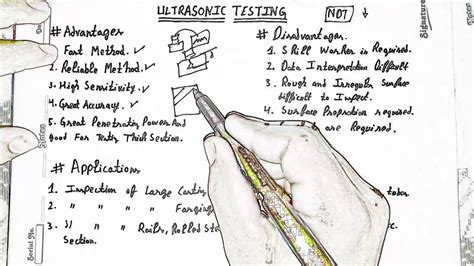 ULTRASONIC TESTING [NDT]
# Advantages
1. Fast Method.
2. Reliable Method.
3. High Sensitivity.
4. Great Accuracy.
5. Great Penetrating Power And
good For Testing Thick Section.
# Disadvantages.
1. Skill Worker is Required.
2. Data Interpretation Difficult
3. Rough and Irregular Surface
difficult to Inspect.
4. Surface Prepration required.
are Required.
# Applications
1. Inspection of Large Casting
2. " " " Forging
3. " " Rails, Rolled
Section.
Serial No.
Signature